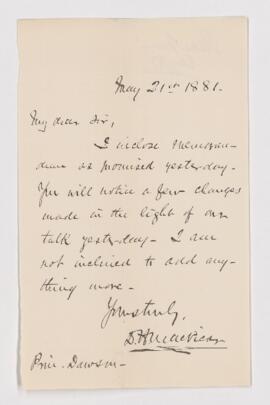 May 21st 1881.
My dear Sir,
I inclose memoran-
dum as promised yesterday.
You will notice a few changes
made in the light of our
talk yesterday. I am
not inclined to add any-
thing more.
Yours truly,
D.H. MacVicar
Prin. Dawson